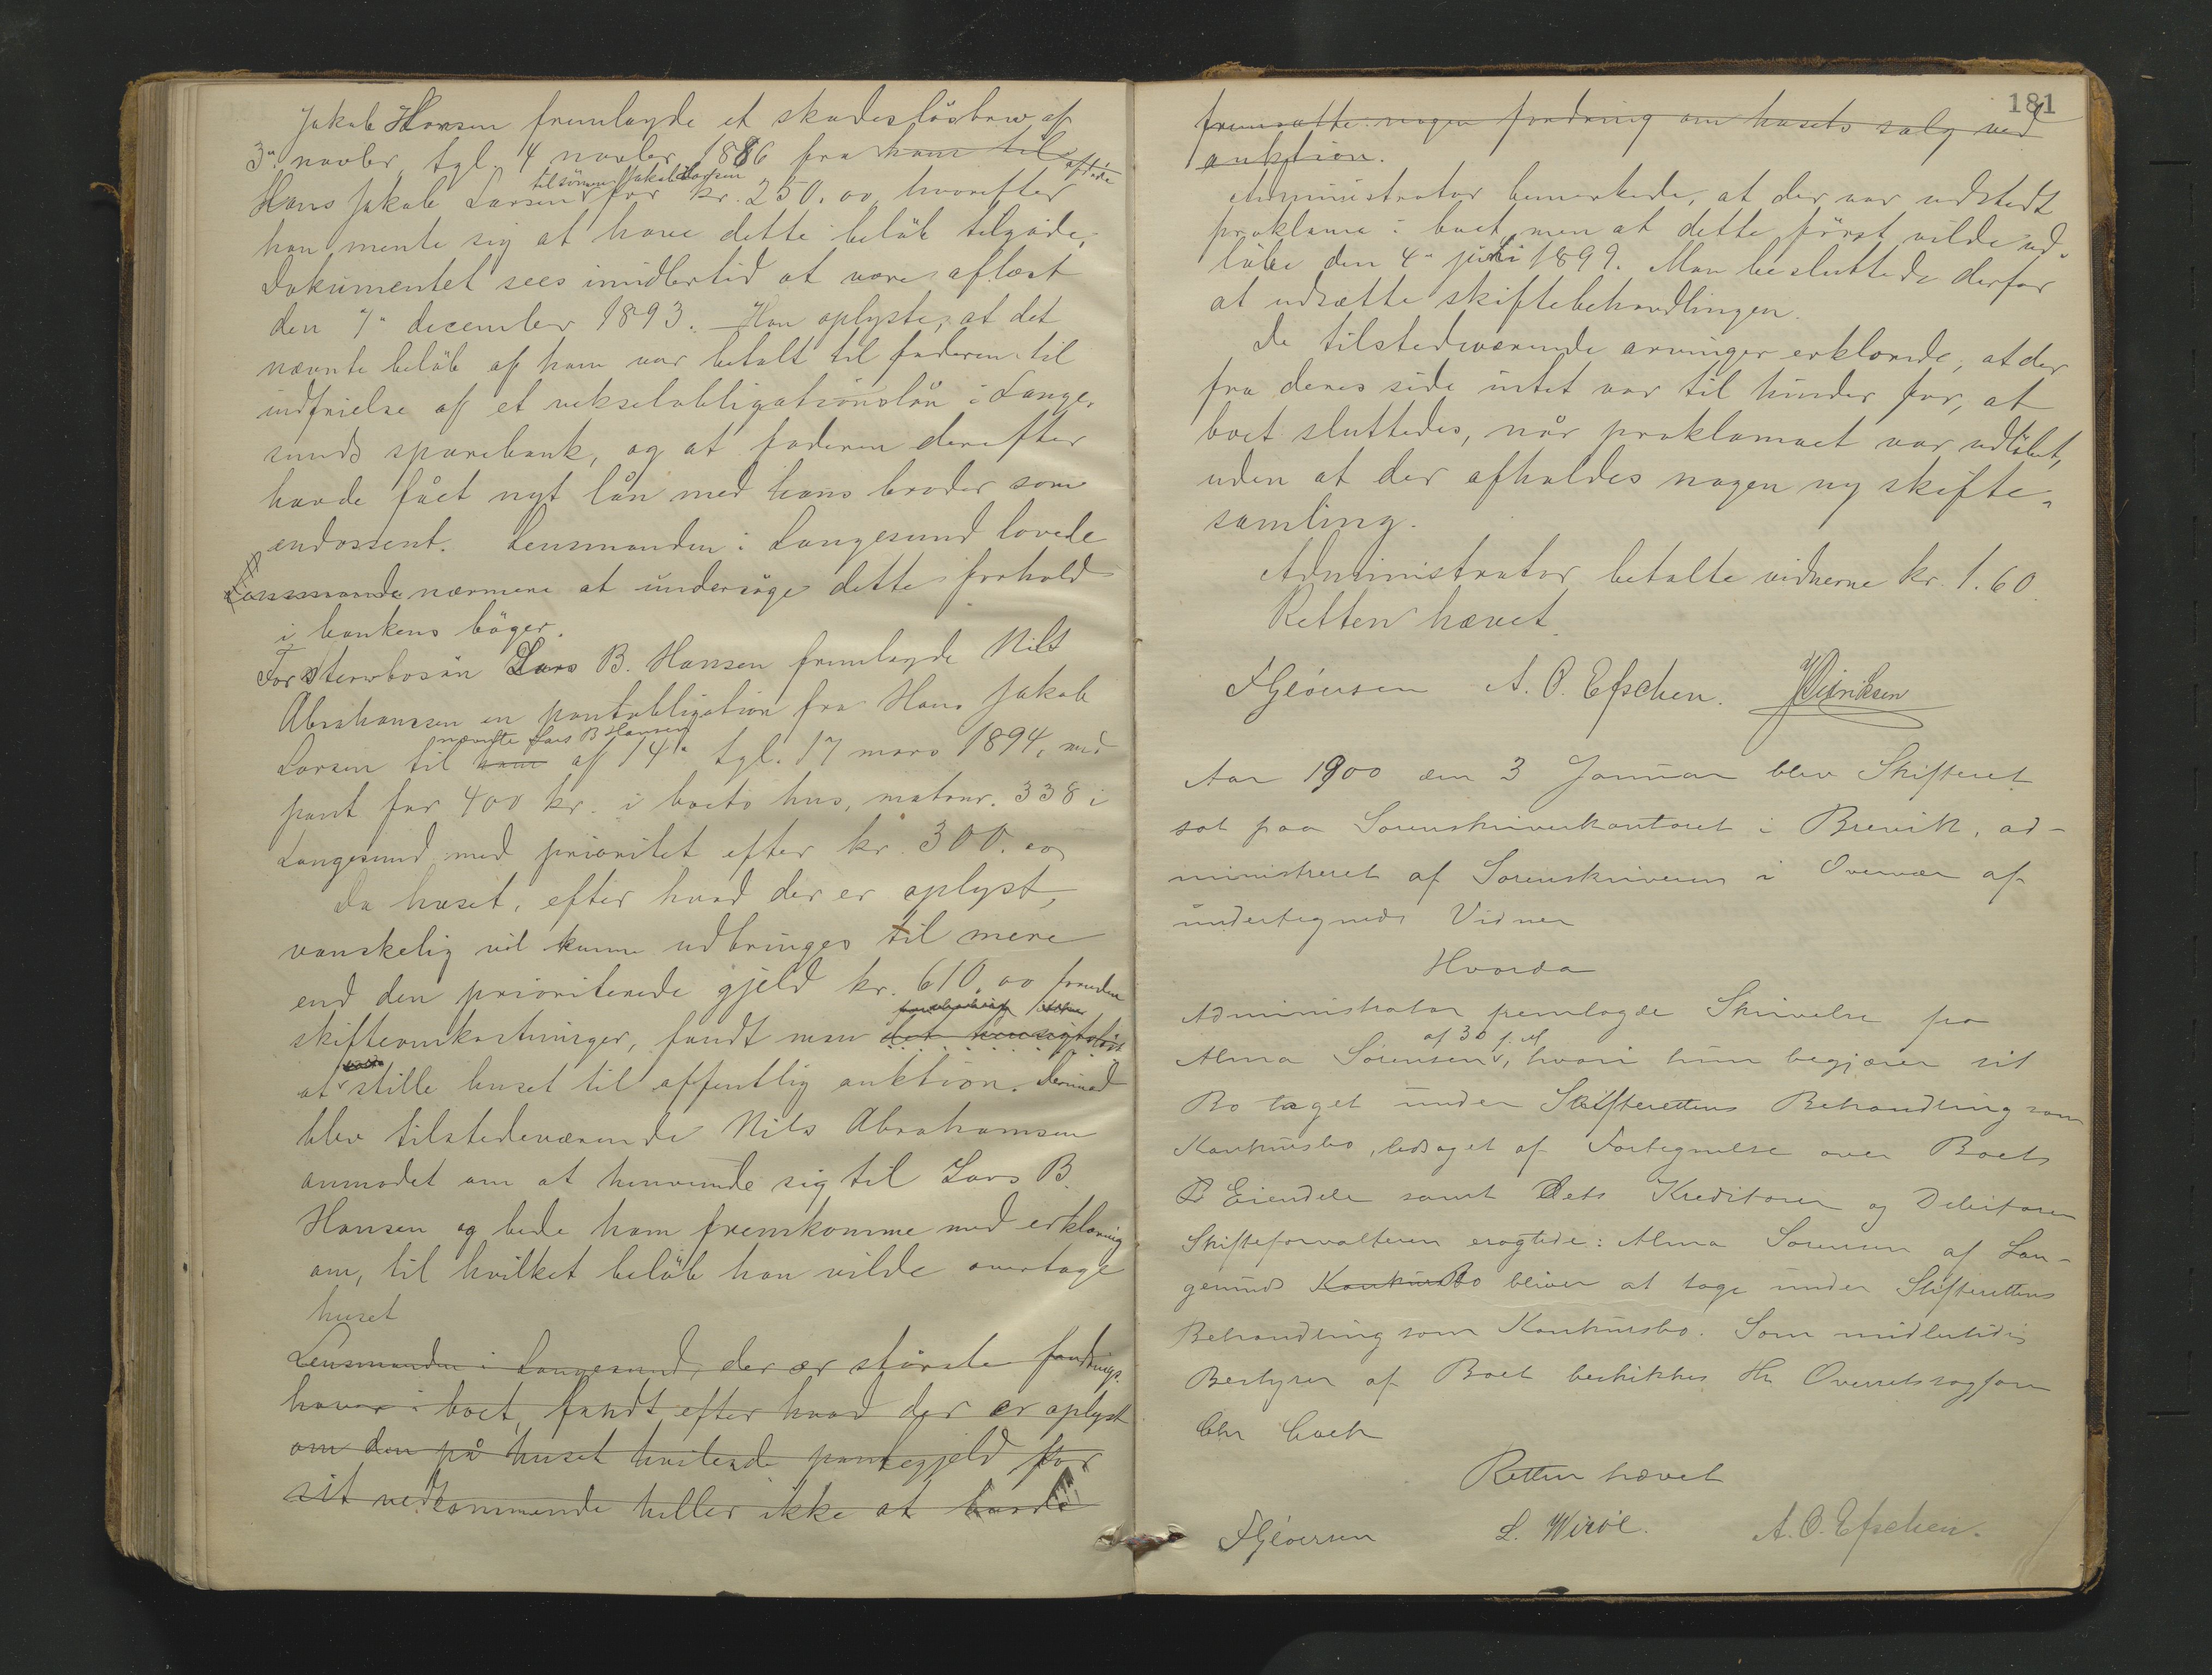 Jakob Hansen fremlagde et skadesløsbrev af
3. novbr. tgl. 4 novbr. 1886 fra ham til afdøde
til sønnen Jakob Hansen
Hans Jakob Larsen for kr. 250.00, hvorefter
han mente sig at have dette beløb tilgode.
Dokumentet sees imidlertid at være aflæst
den 7. december 1893. Han oplyste, at det
nævnte beløb af ham var betalt til faderen til
indfrielse af et vekselobligationslån i Lange-
sunds sparebank, og at faderen derefter
havde fået nyt lån med hans broder som
endossent. Lensmanden i Langesund lovede
Lensmanden nærmere at undersøge dette forhold
i bankens bøger.
For Stervbosøn Lars B. Hansen fremlagde Nils
Abrahamsen en pantobligation fra Hans Jakob
nævnte Lars B Hansen
Larsen til ham af 14. tgl. 17 mars 1894, med
pant for 400 kr. i boets hus, matrnr. 338 i
Langesund med prioritet efter kr. 300.00
Da huset, efter hvad der er oplyst,
vanskelig vil kunne udbringes til mere
end den prioriterede gjeld kr. 610.00 foruden
skifteomkostninger, fandt man det hensigtsløst
at stille huset til offentlig auktion. Derimod
blev tilstedeværende Nils Abrahamsen
anmodet om at henvende sig til Lars B.
Hansen og bede ham fremkomme med erklæring
om, til hvilket beløb han vilde overtage
huset
Lensmanden i Langesund, der er største fordrings-
haver i boet, fandt efter hvad der er oplyst
om den på huset hvilende pantegjeld for
sit vedkommende heller ikke at burde
181
fremsætte nogen fordring om husets salg ved
auktion.
Administrator bemerkede, at der var udstedt
proklama i boet, men at dette først vilde ud-
løbe den 4. juli 1899. Man besluttede derfor
at udsætte skiftebehandlingen.
De tilstedeværende arvinger erklærede, at der
fra deres side intet var til hinder for, at
boet sluttedes, når proklamaet var udløbet,
uden at der afholdes nogen ny skifte-
samling.
Administrator betalte vidnerne kr. 1.60.
Retten hævet.
A. O. Efschen.
Aar 1900 den 3 Januar blev Skifteret
sat paa Sorenskriverkontoret i Brevik, ad-
ministreret af Sorenskriveren i Overvær af
undertegnede Vidner
Hvorda
Administrator fremlagde Skrivelse fra
af 30 f. M
Alma Sørensen, hvori hun begjærer sit
Bo taget under Skifterettens Behandling som
Konkursbo, ledsaget af Fortegnelse over Boets
Eiendele samt dets Kreditorer og Debitorer
Skifteforvalteren eragtede: Alma Sørensen af Lan-
gesunds Konkursbo bliver at tage under Skifterettens
Behandling som Konkursbo. Som midlertidig
Bestyrer af Boet beskikkes Hr Overretssagfører
Chr Coch
Retten hævet
A. O. Efschen.